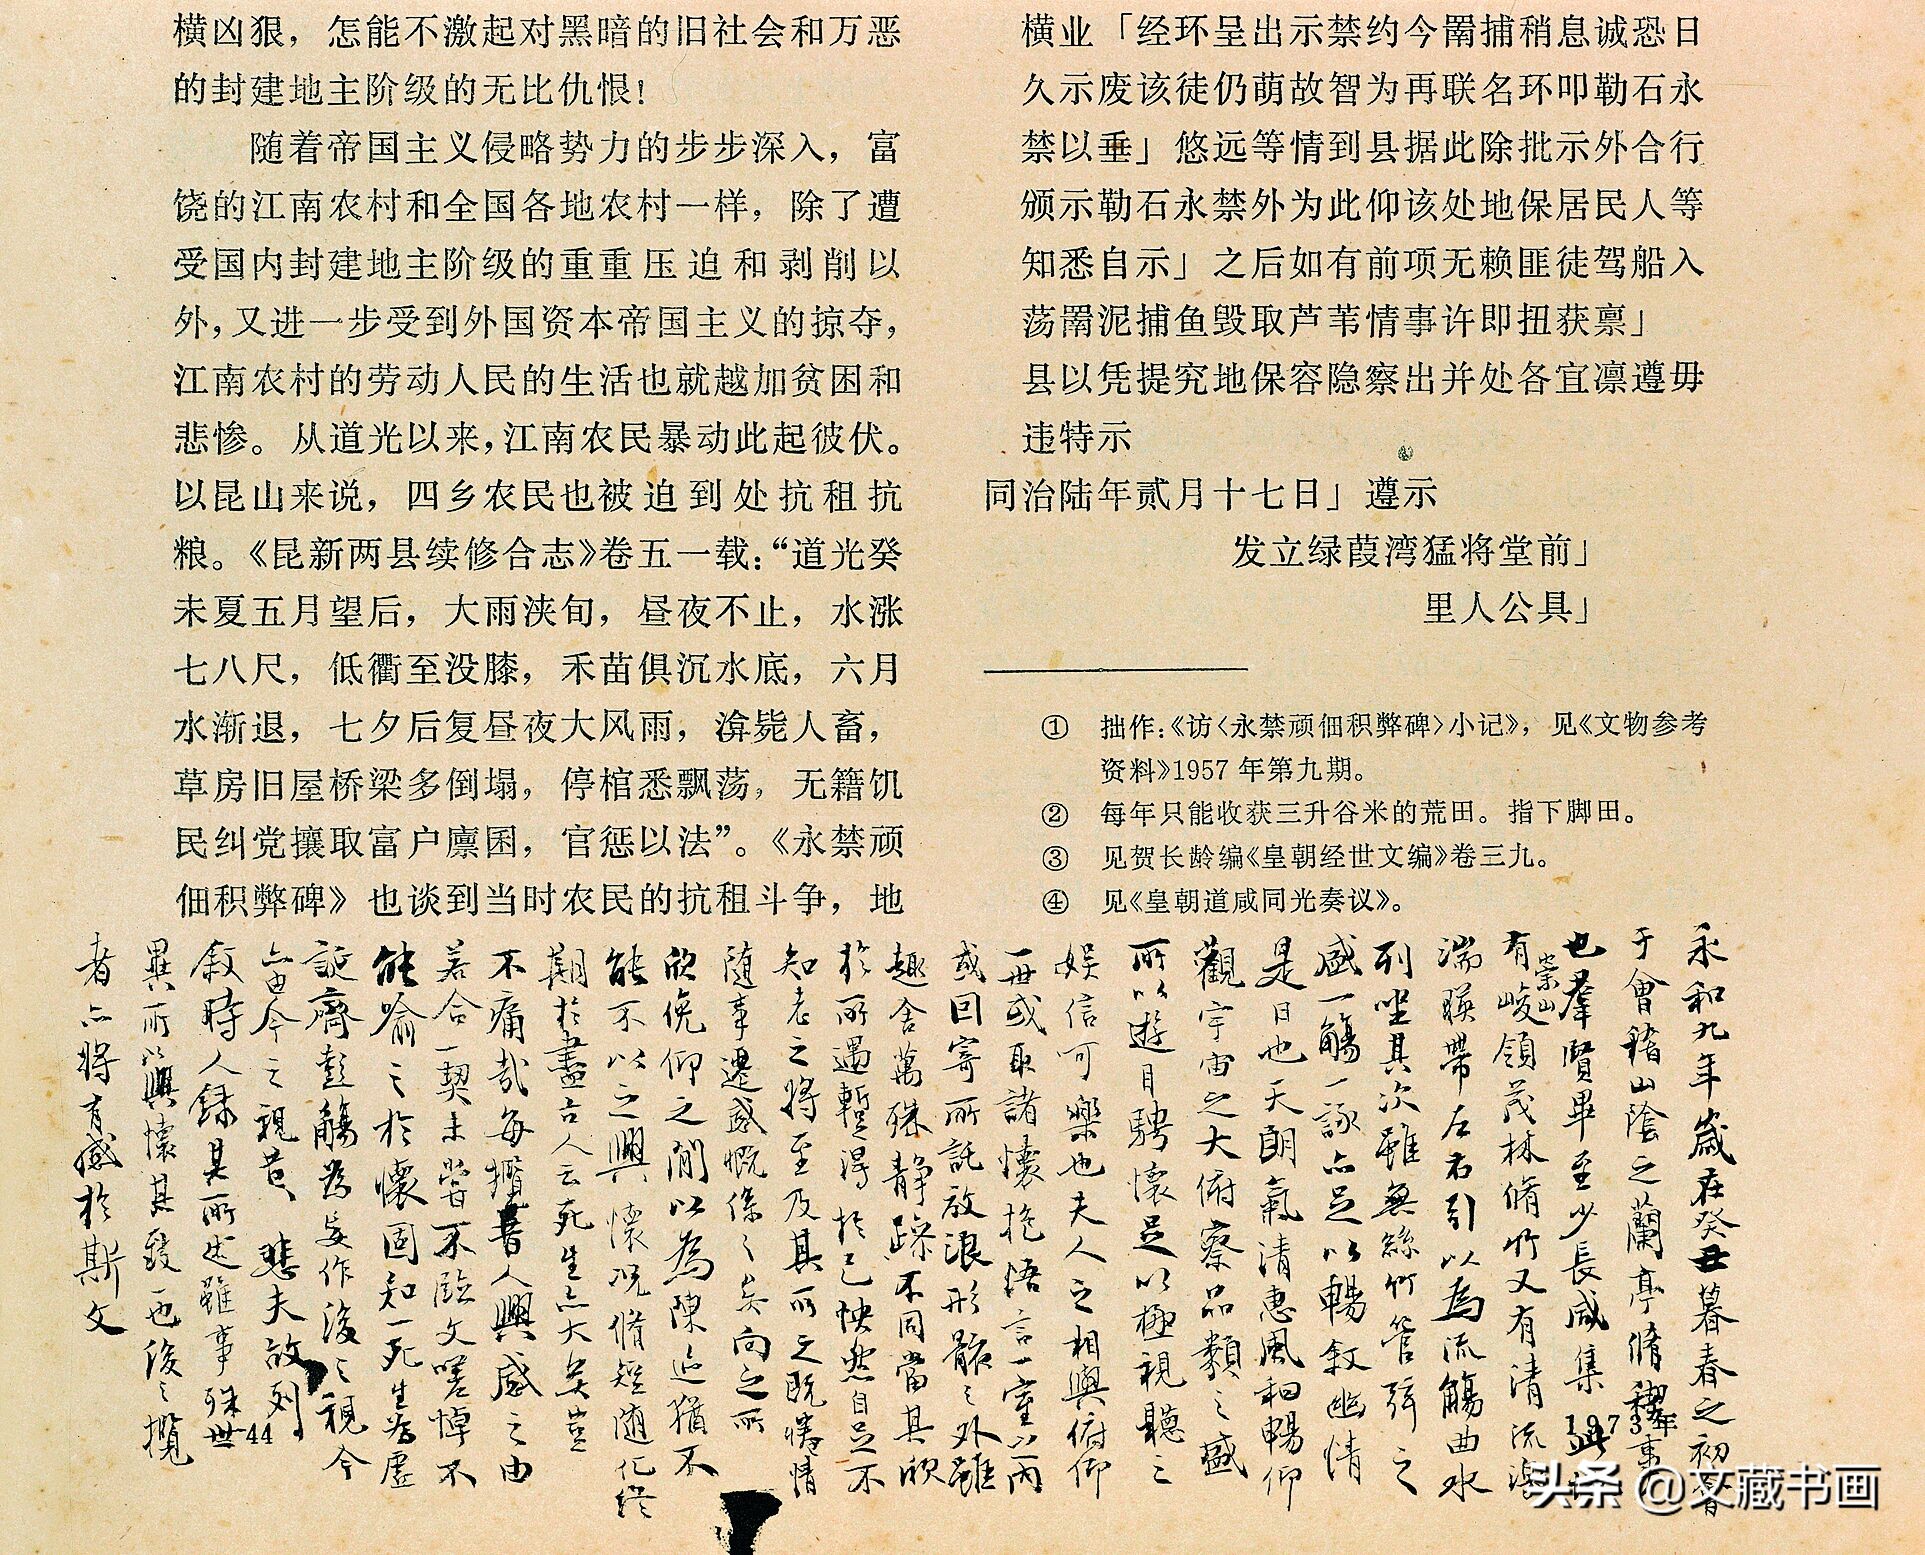 横凶狠，怎能不激起对黑暗的旧社会和万恶
的封建地主阶级的无比仇恨！
随着帝国主义侵略势力的步步深入，富
饶的江南农村和全国各地农村一样，除了遭
受国内封建地主阶级的重重压迫和剥削以
外，又进一步受到外国资本帝国主义的掠夺，
江南农村的劳动人民的生活也就越加贫困和
悲惨。从道光以来，江南农民暴动此起彼伏。
以昆山来说，四乡农民也被迫到处抗租抗
粮。《昆新两县续修合志》卷五一载：“道光癸
未夏五月望后，大雨浃旬，昼夜不止，水涨
七八尺，低衢至没膝，禾苗俱沉水底，六月
水渐退，七夕后复昼夜大风雨，渰毙人畜，
草房旧屋桥梁多倒塌，停棺悉飘荡，无籍饥
民纠党攘取富户廪囷，官惩以法”。《永禁顽
佃积弊碑》也谈到当时农民的抗租斗争，地
横业「经环呈出示禁约今罱捕稍息诚恐日
久示废该徒仍萌故智为再联名环叩勒石永
禁以垂」悠远等情到县据此除批示外合行
颁示勒石永禁外为此仰该处地保居民人等
知悉自示」之后如有前项无赖匪徒驾船入
荡罱泥捕鱼毁取芦苇情事许即扭获禀」
县以凭提究地保容隐察出并处各宜凛遵毋
违特示
同治陆年贰月十七日」遵示
发立绿葭湾猛将堂前」
里人公具」
① 拙作：《访〈永禁顽佃积弊碑〉小记》，见《文物参考
资料》1957年第九期。
② 每年只能收获三升谷米的荒田。指下脚田。
③ 见贺长龄编《皇朝经世文编》卷三九。
④ 见《皇朝道咸同光奏议》。
永和九年歲在癸丑暮春之初會
于會稽山陰之蘭亭脩禊事
也羣賢畢至少長咸集此
有崇山峻領茂林脩竹又有清流激
湍暎帶左右引以為流觴曲水
列坐其次雖無絲竹管弦之
盛一觴一詠亦足以暢敘幽情
是日也天朗氣清惠風和暢仰
觀宇宙之大俯察品類之盛
所以遊目騁懷足以極視聽之
娛信可樂也夫人之相與俯仰
一世或取諸懷抱悟言一室之內
或因寄所託放浪形骸之外雖
趣舍萬殊静躁不同當其欣
於所遇暫得於己怏然自足不
知老之將至及其所之既惓情
随事遷感慨係之矣向之所
欣俛仰之閒以為陳迹猶不
能不以之興懷況脩短随化終
期於盡古人云死生亦大矣豈
不痛哉每攬昔人興感之由
若合一契未嘗不臨文嗟悼不
能喻之於懷固知一死生為虛
誕齊彭觴為妄作後之視今
亦由今之視昔悲夫故列
敘時人錄其所述雖事殊世
異所以興懷其致一也後之攬
者亦將有感於斯文
44
1973年
头条 @文藏书画